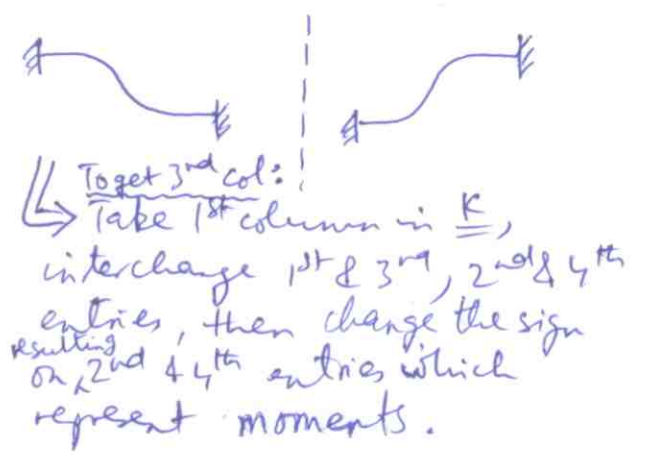 To get 3rd col:
Take 1st column in K,
interchange 1st & 3rd, 2nd & 4th
entries, then change the sign
on resulting 2nd & 4th entries which
represent moments.